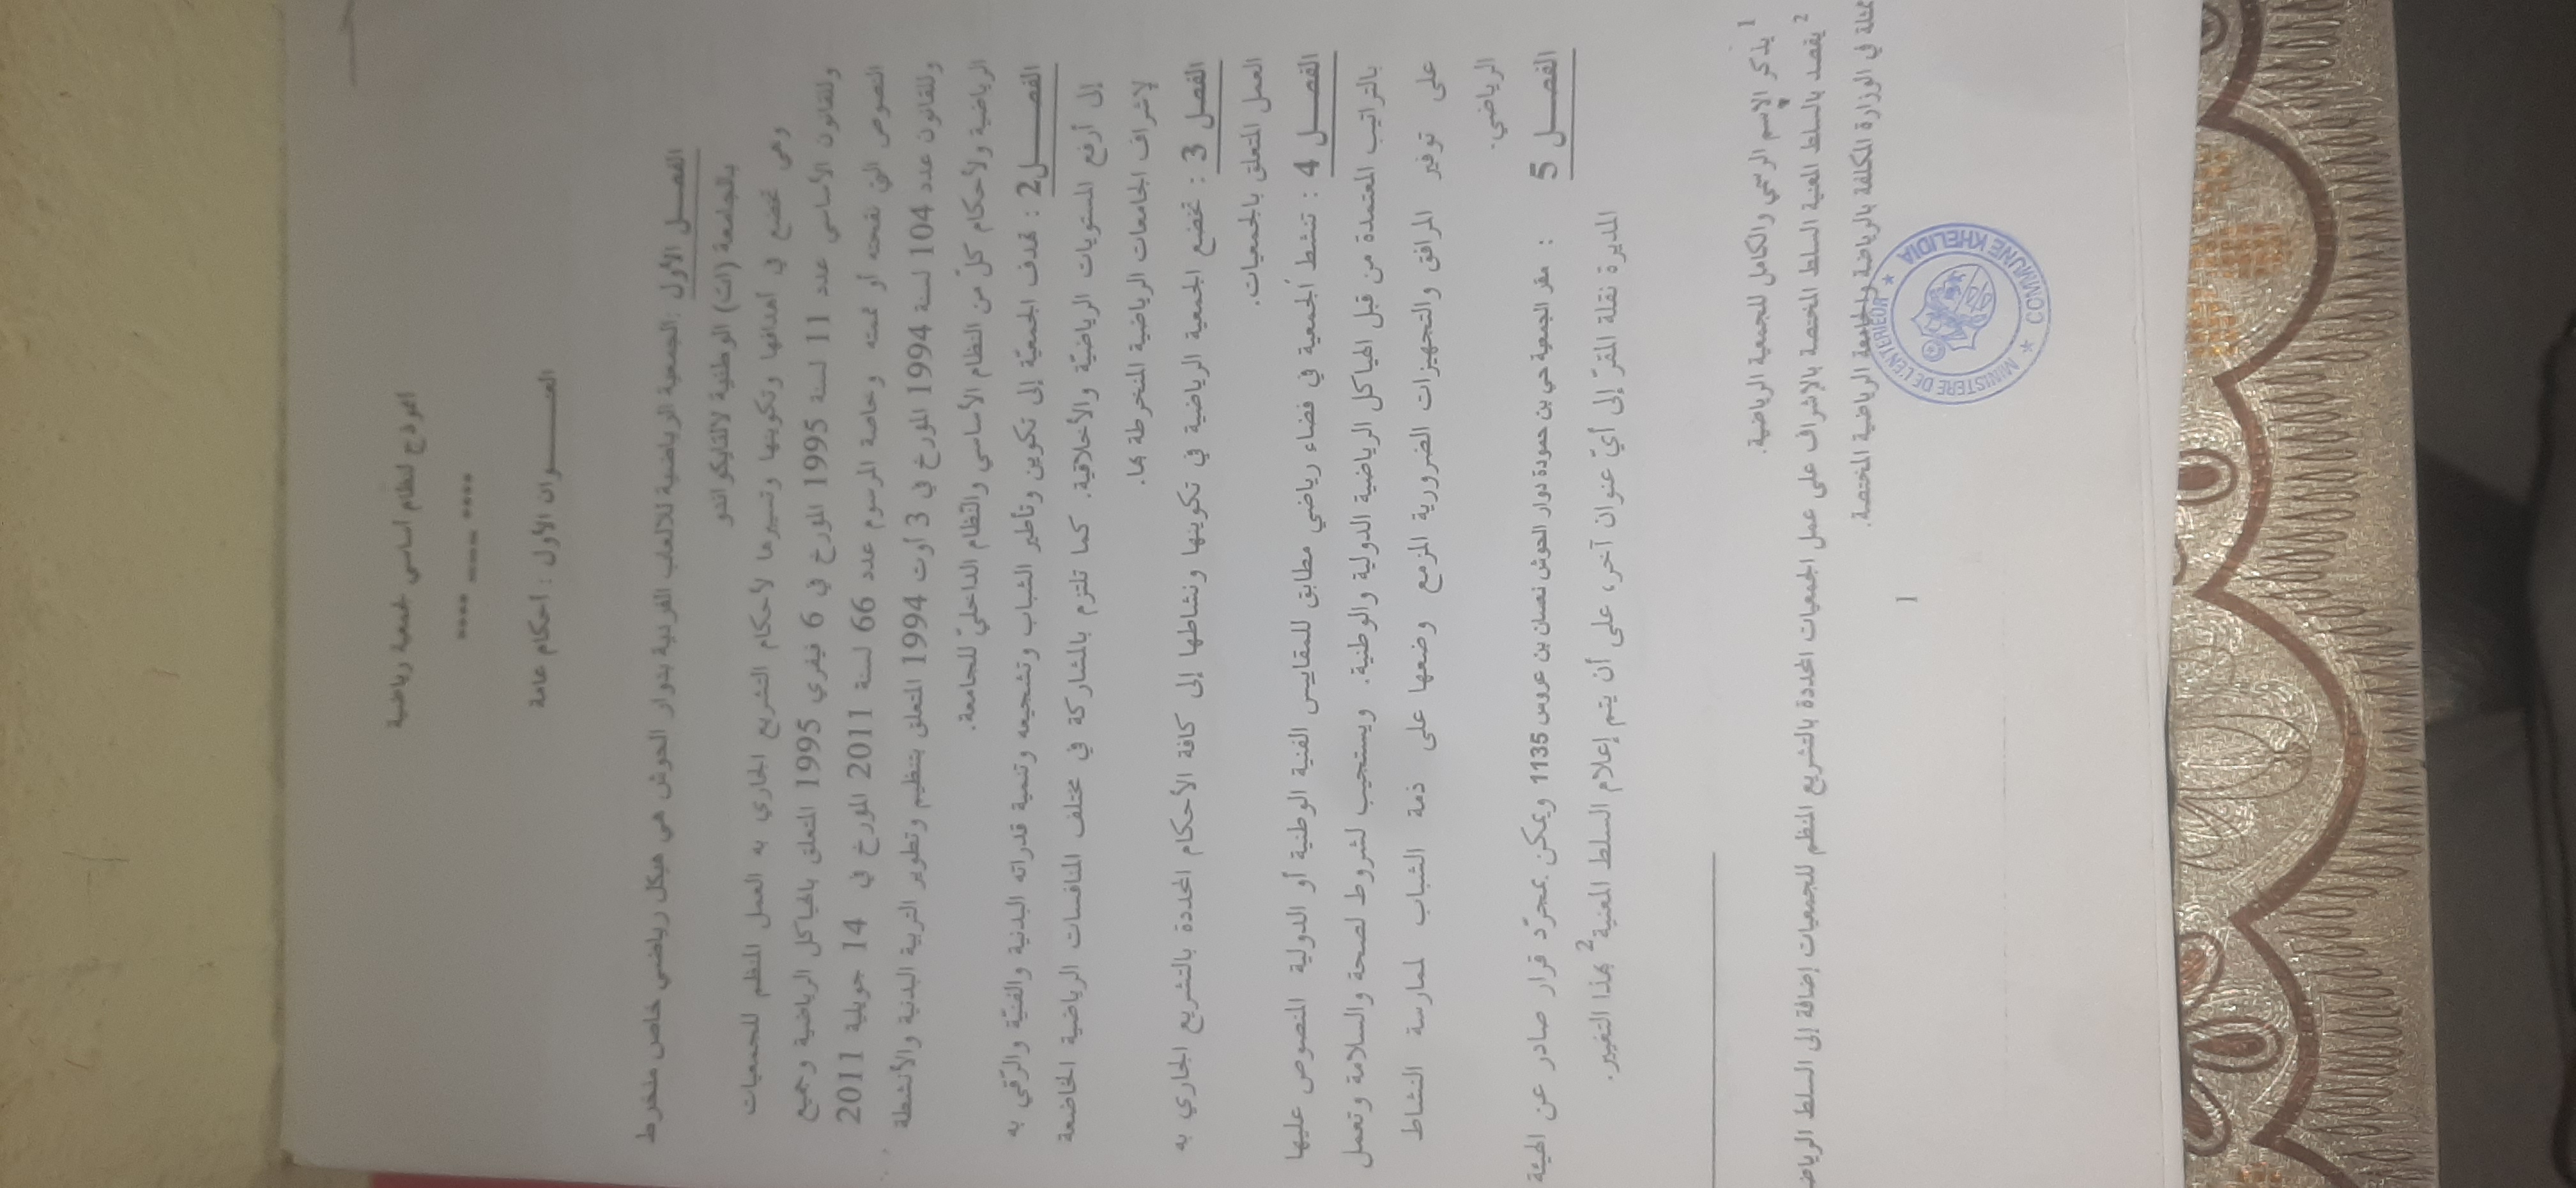 انموذج لنظام أساسي لجمعية رياضية
**** ـــ ****
العنــــــوان الأول : أحكام عامة
الفصــل الأول :الجمعية الرياضية للالعاب الفردية بدوار الحوش هي هيكل رياضي خاص منخرط
بالجامعة (ات) الوطنية لالتايكواندو
وهي تخضع في أهدافها وتكوينها وتسييرها لأحكام التشريع الجاري به العمل المنظم للجمعيات
وللقانون الأساسي عدد 11 لسنة 1995 المؤرخ في 6 فيفري 1995 المتعلق بالهياكل الرياضية وجميع
النصوص التي نقحته أو تممته وخاصة المرسوم عدد 66 لسنة 2011 المؤرخ في 14 جويلية 2011
وللقانون عدد 104 لسنة 1994 المؤرخ في 3 أوت 1994 المتعلق بتنظيم وتطوير التربية البدنية والأنشطة
الرياضية ولأحكام كلّ من النظام الأساسي والنّظام الداخليّ للجامعة.
الفصـــل2 : تهدف الجمعيّة إلى تكوين وتأطير الشباب وتشجيعه وتنمية قدراته البدنية والفنيّة والرّقي به
إلى أرفع المستويات الرياضيّة والأخلاقية. كما تلتزم بالمشاركة في مختلف المنافسات الرياضية الخاضعة
لإشراف الجامعات الرياضية المنخرطة بها.
الفصل 3 : تخضع الجمعية الرياضية في تكوينها ونشاطها إلى كافة الأحكام المحددة بالتشريع الجاري به
العمل المتعلق بالجمعيات.
الفصـــل 4 : تنشط الجمعية في فضاء رياضي مطابق للمقاييس الفنية الوطنية أو الدولية المنصوص عليها
بالتراتيب المعتمدة من قبل الهياكل الرياضية الدولية والوطنية. ويستجيب لشروط لصحة والسلامة وتعمل
على توفير المرافق والتجهيزات الضرورية المزمع وضعها على ذمة الشباب لممارسة النشاط
الرياضي.
الفصـــل 5 : مقر الجمعية حي بن حمودة دوار الحوش نعسان بن عروس 1135 ويمكن بمجرّد قرار صادر عن الهيئة
المديرة نقلة المقرّ إلى أيّ عنوان آخر، على أن يتم إعلام السلط المعنية2 بهذا التغيير.
1 يذكر الإسم الرسمي والكامل للجمعية الرياضية.
2 يقصد بالسلط المعنية السلط المختصة بالإشراف على عمل الجمعيات المحددة بالتشريع المنظم للجمعيات إضافة إلى السلط الرياض
ممثلة في الوزارة المكلفة بالرياضة والجامعة الرياضية المختصة.
MINISTERE DE L'ENTERIEUR * COMMUNE KHELIDIA *
1